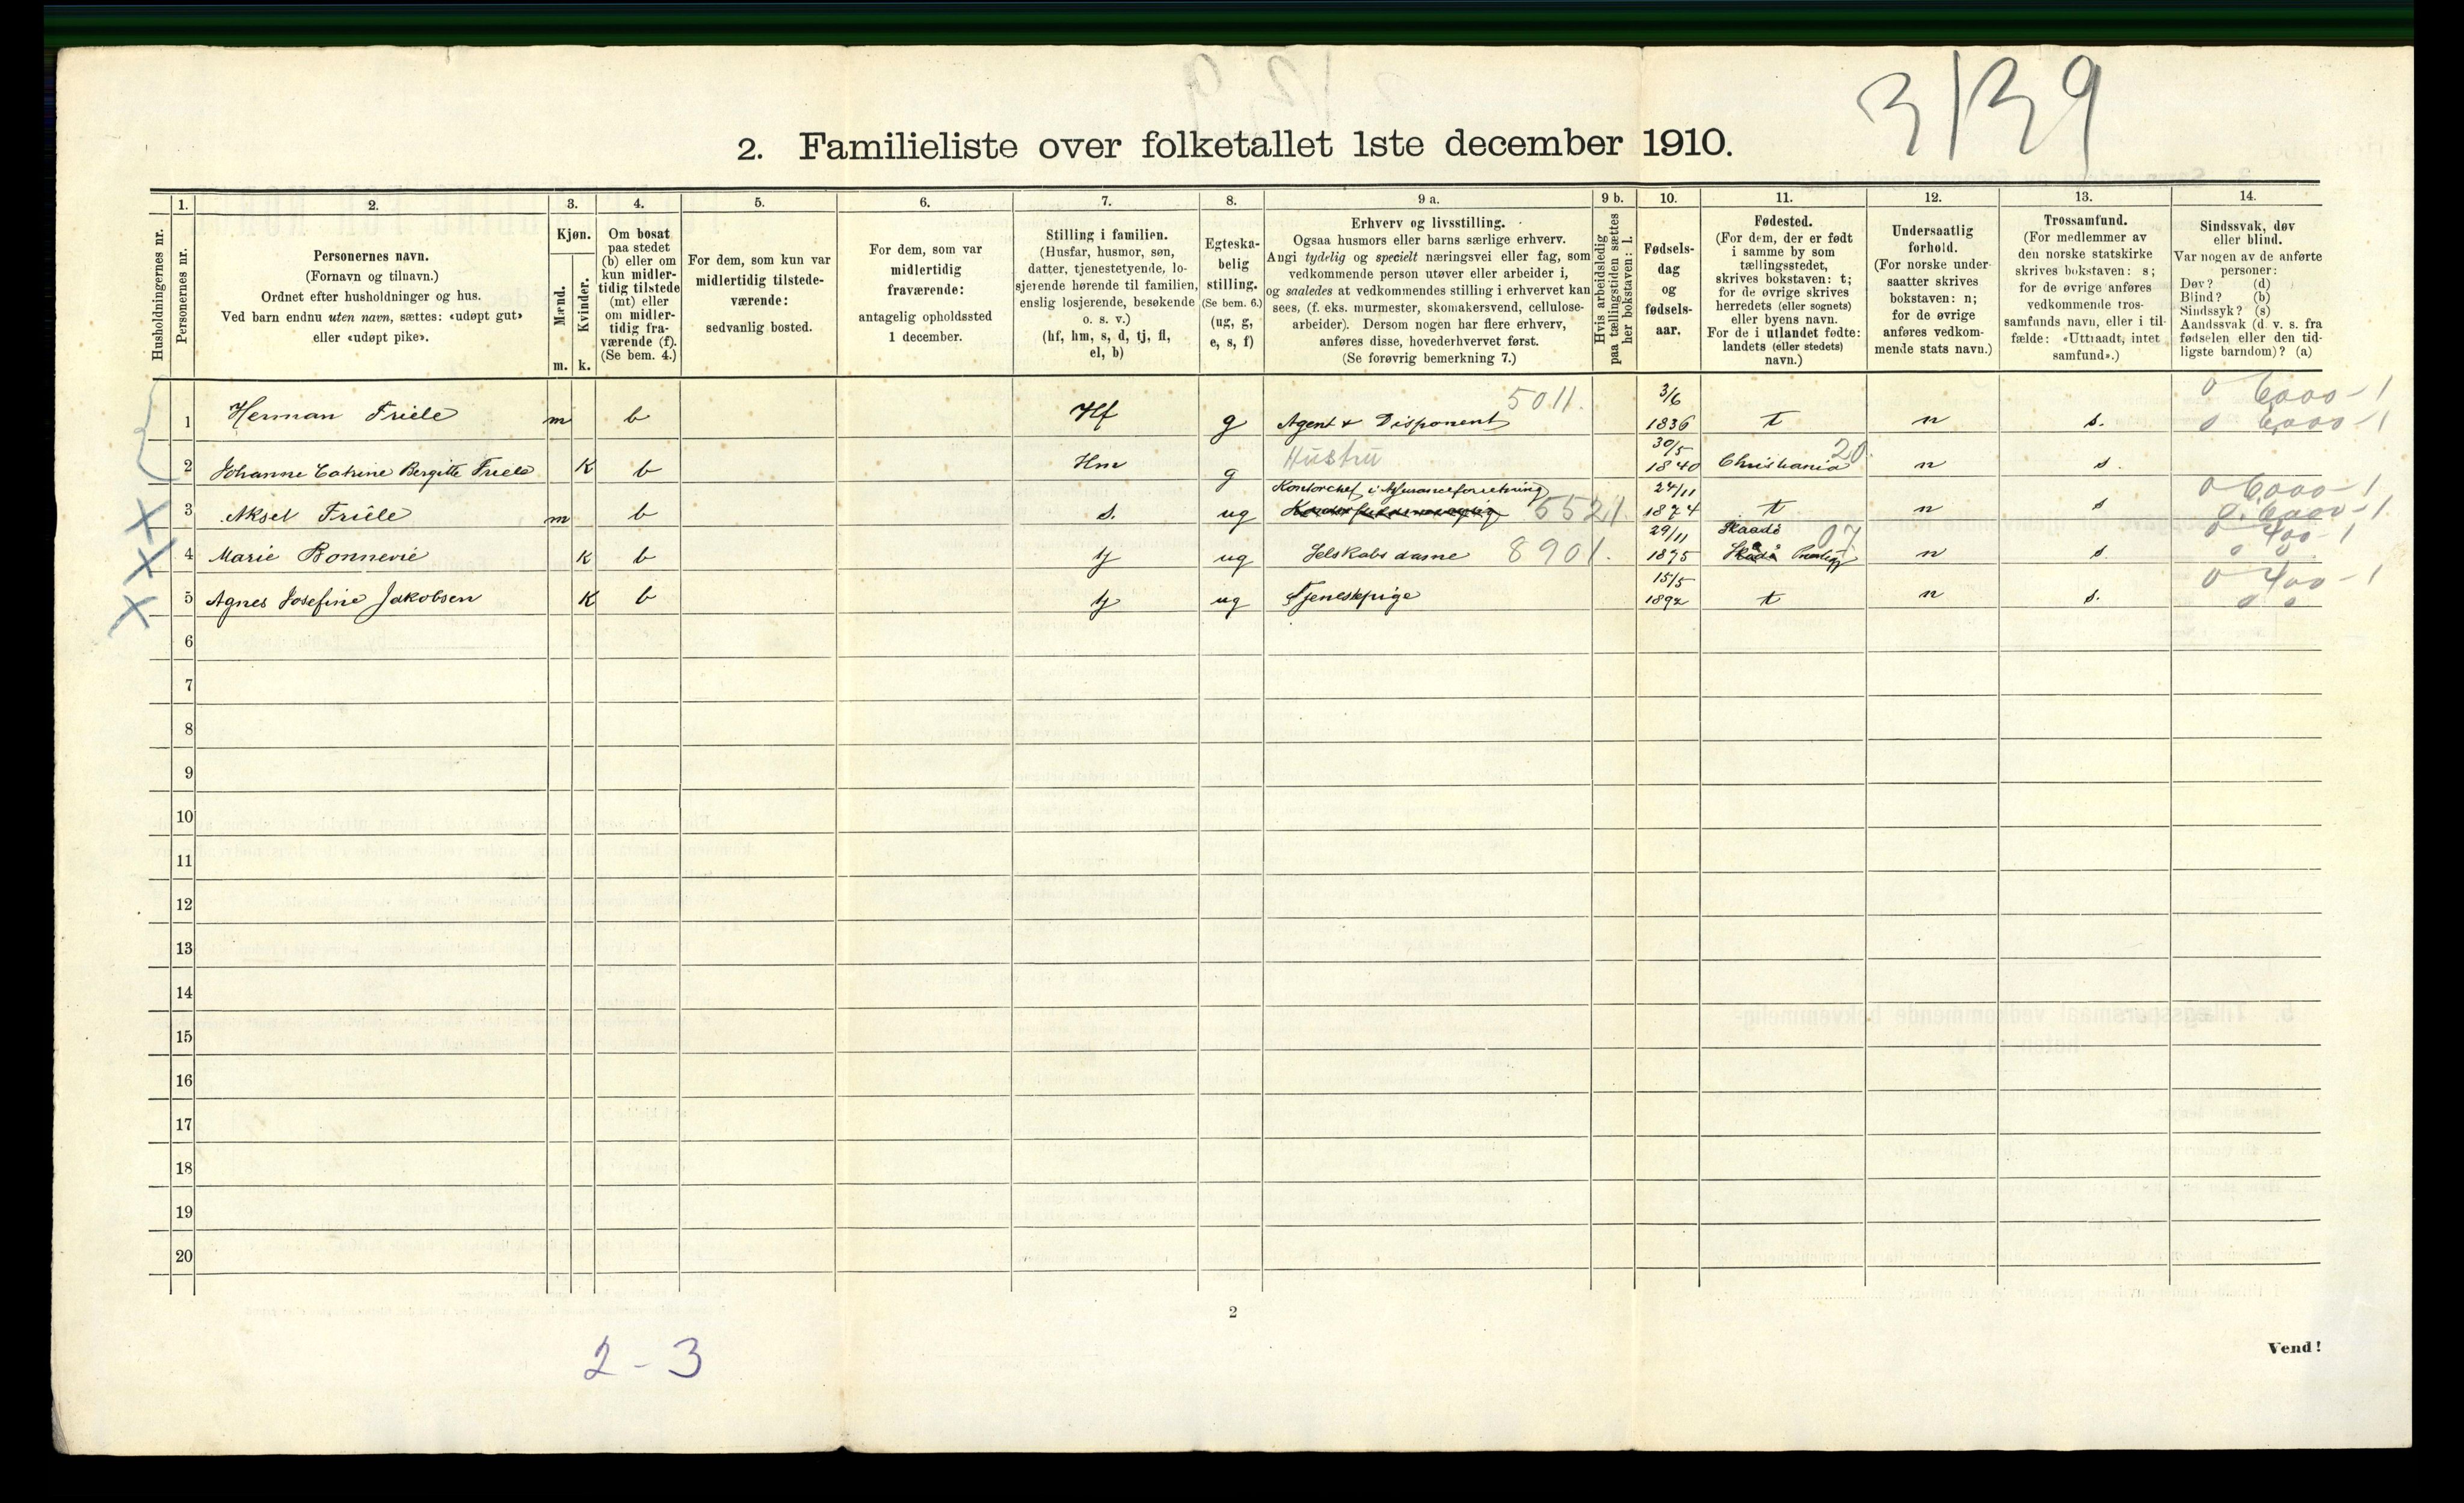 3139
2. Familieliste over folketallet 1ste december 1910.
Husholdningernes nr.
1.
Personernes nr.
2.
Personernes navn.
(Fornavn og tilnavn.)
Ordnet efter husholdninger og hus.
Ved barn endnu uten navn, sættes: «udøpt gut»
eller «udøpt pike».
3.
Kjøn.
Mænd.
Kvinder.
m. k.
4.
Om bosat
paa stedet
(b) eller om
kun midler-
tidig tilstede
(mt) eller
om midler-
tidig fra-
værende (f).
(Se bem. 4.)
5.
For dem, som kun var
midlertidig tilstede-
værende:
sedvanlig bosted.
6.
For dem, som var
midlertidig
fraværende:
antagelig opholdssted
1 december.
7.
Stilling i familien.
(Husfar, husmor, søn,
datter, tjenestetyende, lo-
sjerende hørende til familien,
enslig losjerende, besøkende
o. s. v.)
(hf, hm, s, d, tj, fl,
el, b)
8.
Egteska-
belig
stilling.
(Se bem. 6.)
(ug, g,
e, s, f)
9 a.
Erhverv og livsstilling.
Ogsaa husmors eller barns særlige erhverv.
Angi tydelig og specielt næringsvei eller fag, som
vedkommende person utøver eller arbeider i,
og saaledes at vedkommendes stilling i erhvervet kan
sees, (f. eks. murmester, skomakersvend, cellulose-
arbeider). Dersom nogen har flere erhverv,
anføres disse, hovederhvervet først.
(Se forøvrig bemerkning 7.)
9 b.
Hvis arbeidsledig
paa tællingstiden sættes
her bokstaven: l.
10.
Fødsels-
dag
og
fødsels-
aar.
11.
Fødested.
(For dem, der er født
i samme by som
tællingsstedet,
skrives bokstaven: t;
for de øvrige skrives
herredets (eller sognets)
eller byens navn.
For de i utlandet fødte:
landets (eller stedets)
navn.)
12.
Undersaatlig
forhold.
(For norske under-
saatter skrives
bokstaven: n;
for de øvrige
anføres vedkom-
mende stats navn.)
13.
Trossamfund.
(For medlemmer av
den norske statskirke
skrives bokstaven: s;
for de øvrige anføres
vedkommende tros-
samfunds navn, eller i til-
fælde: «Uttraadt, intet
samfund».)
14.
Sindssvak, døv
eller blind.
Var nogen av de anførte
personer:
Døv? (d)
Blind? (b)
Sindssyk? (s)
Aandssvak (d. v. s. fra
fødselen eller den tid-
ligste barndom)? (a)
0 6000-1
1 Herman Friele m b Hf g Agent & Disponent 5011. 3/6 1836 t n s. 0 6,000-1
2 Johanne Catrine Bergitte Friele K b Hm g Hustru 30/5 1840 Christiania 20. n s.
Kontorchef i Assuranceforretning 24/11 0 6000-1
3 Aksel Friele m b s. ug 5521. 1874 t n s 0. 6000-1.
29/11 Skaadø 07 0 400-1
4 Marie Bonnevie K b tj ug Selskabsdame 8901. 1875 n s. 0 0
15/5 0 400-1
5 Agnes Josefine Jakobsen K b tj ug Tjenestpige 1892 t n s. 0 0
6
7
8
9
10
11
12
13
14
15
16
17
18
19
20
2
2-3
Vend!